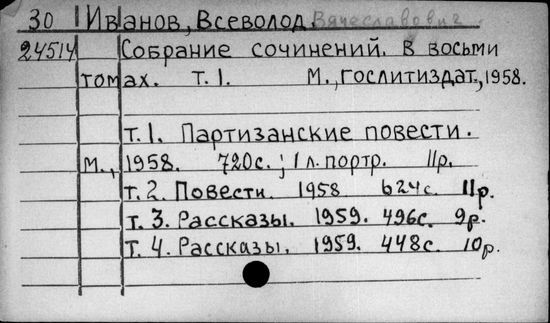 30 Иванов, Всеволод Вячеславович.
24514 Собрание сочинений. В восьми
томах. Т. 1. М., Гослитиздат, 1958.
т. 1. Партизанские повести.
М., 1958. 720с.; 1 л. портр. 11р.
т. 2. Повести. 1958 624с. 11р.
т. 3. Рассказы. 1959. 496с. 9р.
т. 4. Рассказы. 1959. 448с. 10р.